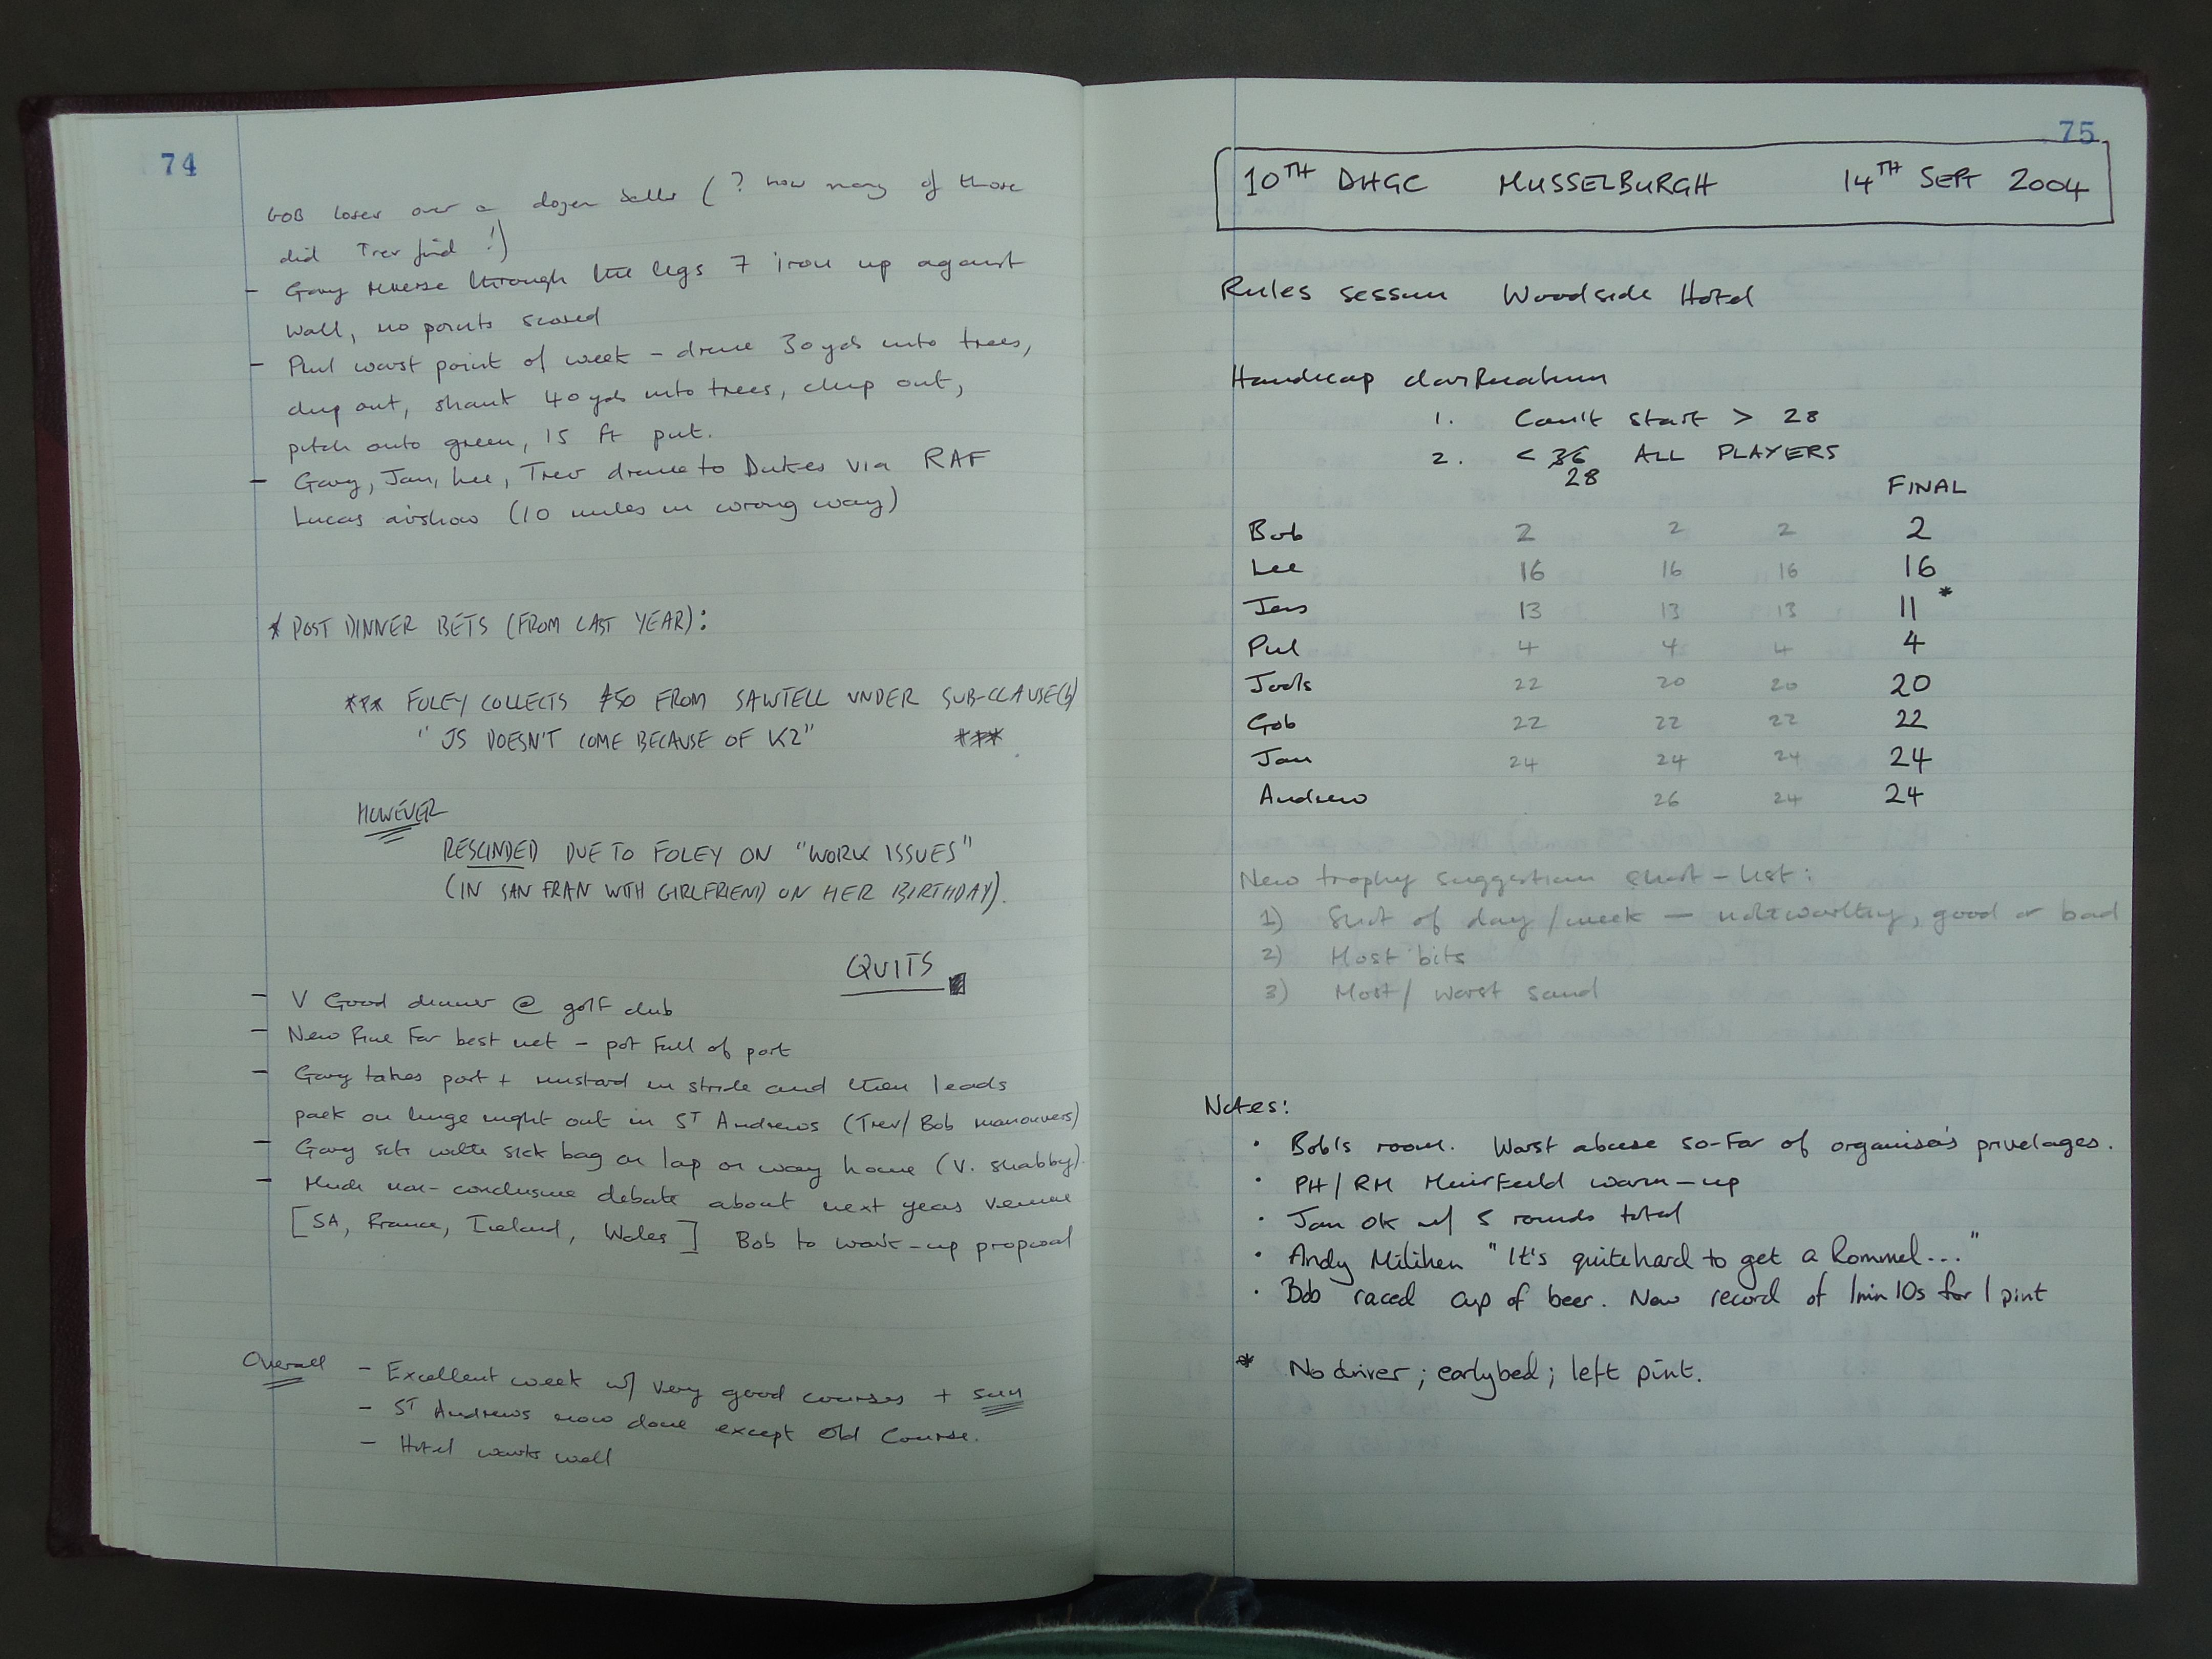 74
GOB loses over a dozen balls (? how many of those
did Trev find !)
- Gary reverse through the legs 7 iron up against
wall, no points scored
- Phil worst point of week - drive 30 yds into trees,
chip out, shank 40 yds into trees, chip out,
pitch onto green, 15 ft put.
- Gary, Jan, Lee, Trev drive to Dukes via RAF
Lucas airshow (10 miles in wrong way)
* POST DINNER BETS (FROM LAST YEAR):
*** FOLEY COLLECTS £50 FROM SAWTELL UNDER SUB-CLAUSE(b)
"JS DOESN'T COME BECAUSE OF K2" ***
HOWEVER
RESCINDED DUE TO FOLEY ON "WORK ISSUES"
(IN SAN FRAN WITH GIRLFRIEND ON HER BIRTHDAY).
QUITS
- V Good dinner @ golf club
- New fine for best net - pot full of port
- Gary takes port + mustard in stride and then leads
pack on huge night out in ST Andrews (Trev/Bob manouvers)
- Gary sits with sick bag on lap on way home (V. shabby).
- Much non-conclusive debate about next years venue
[SA, France, Ireland, Wales] Bob to work-up proposal
Overall - Excellent week w/ very good courses + sun
- ST Andrews now done except Old Course.
- Hotel works well
75
10TH DHGC MUSSELBURGH 14TH SEPT 2004
Rules session Woodside Hotel
Handicap clarification
1. Can't start > 28
2. < 36 ALL PLAYERS
28
FINAL
Bob 2 2 2 2
Lee 16 16 16 16
Jens 13 13 13 11 *
Phil 4 4 4 4
Jools 22 20 20 20
Gob 22 22 22 22
Jan 24 24 24 24
Andrew 26 24 24
New trophy suggestion short-list:
1) Shot of day/week - noteworthy, good or bad
2) Most bits
3) Most/ worst sand
Notes:
· Bob's room. Worst abuse so-far of organiser's privelages.
· PH/RM Muirfield warm-up
· Jan OK w/ 5 rounds total
· Andy Miliken "It's quite hard to get a Rommel..."
· Bob raced cup of beer. New record of 1min 10s for 1 pint
* No driver; early bed; left pint.